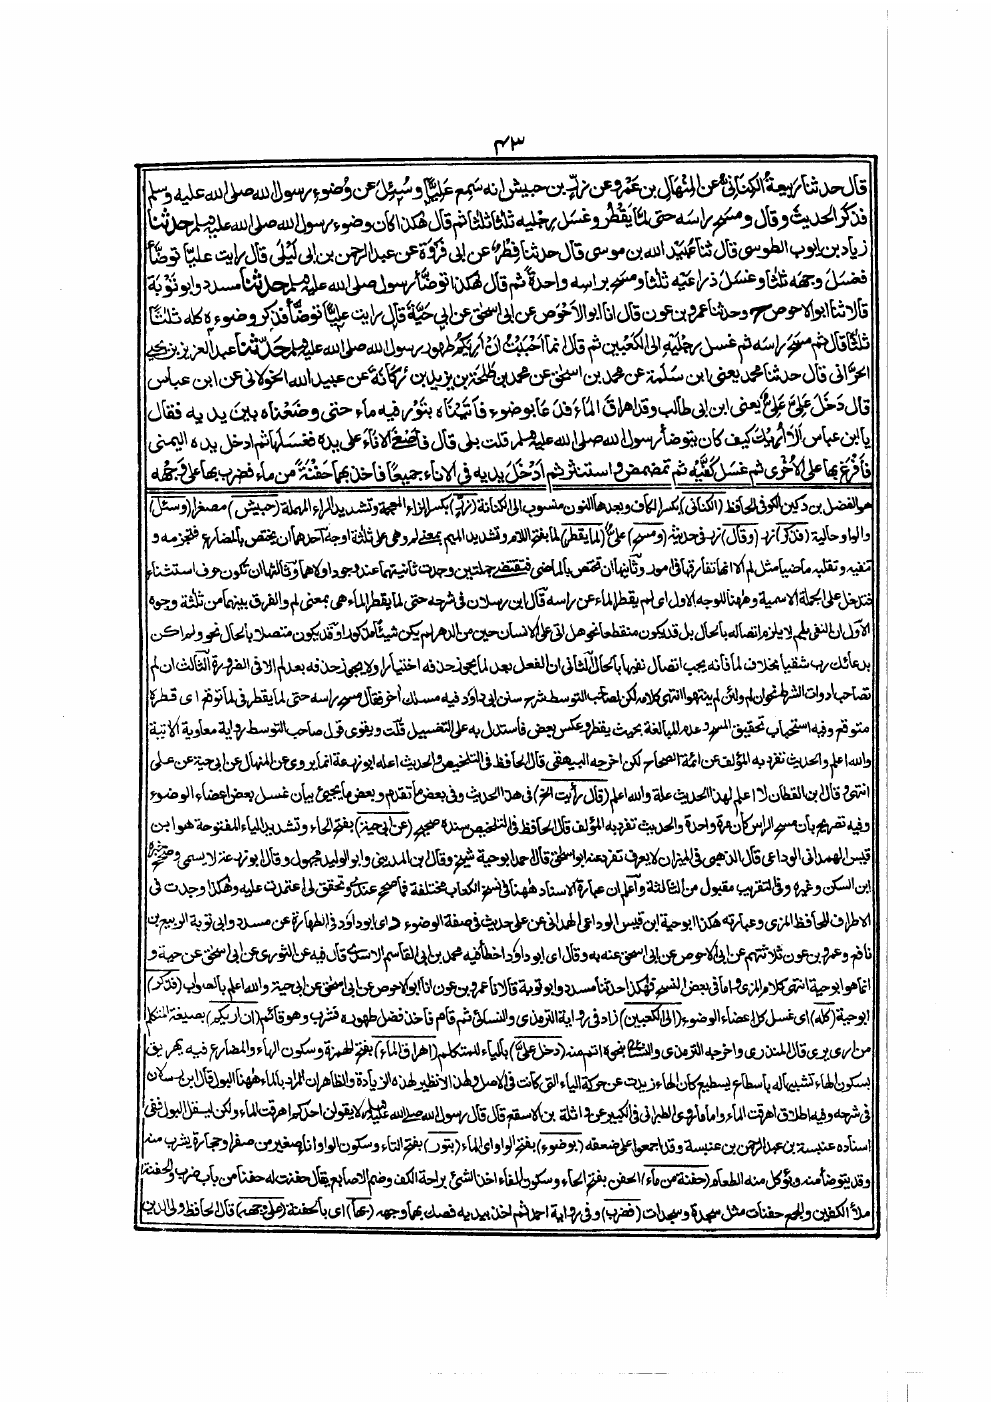 ۴۳
قال حدثنا ربيعة الكناني عن المنهال بن عمرو عن زر بن حبيش انه سمع عليا وسئل عن وضوء رسول الله صلى الله عليه وسلم
فذكر الحديث وقال ومسح راسه حتى لما يقطر وغسل رجليه ثلثا ثلثا ثم قال هكذا كان وضوء رسول الله صلى الله عليه وسلم حدثنا
زياد بن ايوب الطوسي قال ثنا عبيد الله بن موسى قال حدثنا فطر عن ابى فروة عن عبد الرحمن بن ابى ليلى قال رايت عليا توضأ
فغسل وجهه ثلثا وغسل ذراعيه ثلثا ومسح براسه واحدة ثم قال هكذا توضأ رسول الله صلى الله عليه وسلم حدثنا مسدد وابو توبة
قالا ثنا ابو الاحوص ح وحدثنا عمرو بن عون قال انا ابو الاحوص عن ابى اسحق عن ابى حية قال رايت عليا توضأ فذكر وضوءه كله ثلثا
ثلثا قال ثم مسح راسه ثم غسل رجليه الى الكعبين ثم قال انما احببت ان اريكم طهور رسول الله صلى الله عليه وسلم حدثنا عبد العزيز بن يحيى
الحرانى قال حدثنا محمد يعنى ابن سلمة عن محمد بن اسحق عن محمد بن طلحة بن يزيد بن ركانة عن عبيد الله الخولانى عن ابن عباس
قال دخل على علي يعنى ابن ابى طالب وقد اهراق الماء فدعا بوضوء فاتيناه بتور فيه ماء حتى وضعناه بين يديه فقال
يا ابن عباس الا اريك كيف كان يتوضأ رسول الله صلى الله عليه وسلم قلت بلى قال فاصغى الاناء على يده فغسلها ثم ادخل يده اليمنى
فافرغ بها على الاخرى ثم غسل كفيه ثم تمضمض واستنثر ثم ادخل يديه فى الاناء جميعا فاخذ بهما حفنة من ماء فضرب بها على وجهه
هو الفضل بن دكين الكوفى الحافظ (الكنانى) بكسر الكاف وبعدها النون منسوب الى الكنانة (زر) بكسر الزاء المعجمة وتشديد الراء المهملة (حبيش) مصغرا (وسئل)
والواو حالية (فذكر) زر (وقال) زر فى حديثه (ومسح) علي (لما يقطر) لما بفتح اللام وتشديد الميم بمعنى لم وهى على ثلثة اوجه احدها ان يختص بالمضارع فتجزمه و
تنفيه وتقلبه ماضيا مثل لم الا انها تفارقها فى امور وثانيها ان تختص بالماضى فتقتضى جملتين وجدت ثانيتهما عند وجود اولاهما وثالثها ان تكون حرف استثناء
فتدخل على الجملة الاسمية وههنا للوجه الاول اى لم يقطر الماء عن راسه قال ابن رسلان فى شرحه حتى لما يقطر الماء هى بمعنى لم والفرق بينهما من ثلثة وجوه
الاول ان النفى بلم لا يلزم اتصاله بالحال بل قد يكون منقطعا نحو هل اتى على الانسان حين من الدهر لم يكن شيئا مذكورا وقد يكون متصلا بالحال نحو ولم اكن
بدعائك رب شقيا بخلاف لما فانه يجب اتصال نفيها بالحال الثانى ان الفعل بعد لما يجوز حذفه اختيارا ولا يجوز حذفه بعد لم الا فى الضرورة الثالث ان لم
تصاحب ادوات الشرط نحو ان لم ولئن لم ينتهوا انتهى كلامه لكن لصاحب التوسط شرح سنن ابى داود فيه مسلك اخر فقال مسح راسه حتى لما يقطر فى لما توقع اى قطره
متوقع وفيه استحباب تحقيق المسح وعدم المبالغة بحيث يقطر وعكس بعض فاستدل به على التفصيل قلت ويقوى قول صاحب التوسط رواية معاوية الاتية
والله اعلم والحديث تفرد به المؤلف عن ائمة الصحاح لكن اخرجه البيهقى قال الحافظ فى التلخيص والحديث اعله ابو زرعة انما يروى عن المنهال عن ابى حية عن على
انتهى وقال ابن القطان لا اعلم لهذا الحديث علة والله اعلم (قال رايت الخ) فى هذا الحديث وفى بعض ما تقدم وبعض ما يجيئ بيان غسل بعض اعضاء الوضوء
وفيه تصريح بان مسح الراس كان مرة واحدة والحديث تفرد به المؤلف قال الحافظ فى التلخيص سنده صحيح (عن ابى حية) بفتح الحاء وتشديد الياء المفتوحة هو ابن
قيس الهمدانى الوداعى قال الذهبى فى الميزان لا يعرف تفرد عنه ابو اسحق قال احمد ابو حية شيخ وقال ابن المدينى وابو الوليد مجهول وقال ابو زرعة لا يسمى وصحح خبره
ابن السكن وغيره وفى التقريب مقبول من الثالثة واعلم ان عبارة الاسناد ههنا فى نسخ الكتاب مختلفة فاصح عندى وتحقق لى اعتمدت عليه وهكذا وجدت فى
الاطراف للحافظ المزى وعبارته هكذا ابو حية ابن قيس الوداعى الهمدانى عن على حديث فى صفة الوضوء د اى ابو داود فى الطهارة عن مسدد وابى توبة الربيع بن
نافع وعمرو بن عون ثلاثتهم عن ابى الاحوص عن ابى اسحق عنه به وقال اى ابو داود اخطأ فيه محمد بن ابى القاسم الاسدى قال فيه عن الثورى عن ابى اسحق عن حية و
انما هو ابو حية انتهى كلام المزى واما فى بعض النسخ فهكذا حدثنا مسدد وابو توبة قالا نا عمرو بن عون انا ابو الاحوص عن ابى اسحق عن ابى حية والله اعلم بالصواب (فذكر)
ابو حية (كله) اى غسل كل اعضاء الوضوء (الى الكعبين) زاد فى رواية الترمذى والنسائى ثم قام فاخذ فضل طهوره فشرب وهو قائم (ان اريكم) بصيغة المتكلم
من ارى يرى قال المنذرى واخرجه الترمذى والنسائى بنحوه اتم منه (دخل على) بالياء للمتكلم (اهراق الماء) بفتح الهمزة وسكون الهاء والمضارع فيه يهريق
بسكون الهاء تشبيها له باسطاع يسطيع كان الهاء زيدت عن حركة الياء التى كانت فى الاصل ولهذا لا نظير لهذه الزيادة والظاهر ان المراد بالماء ههنا البول قال ابن رسلان
فى شرحه وفيه اطلاق اهرقت الماء واما ما روى الطبرانى فى الكبير عن واثلة بن الاسقع قال قال رسول الله صلى الله عليه وسلم لا يقولن احدكم اهرقت الماء ولكن ليقل البول ففى
اسناده عنبسة بن عبد الرحمن بن عنبسة وقد اجمعوا على ضعفه (بوضوء) بفتح الواو اى الماء (بتور) بفتح التاء وسكون الواو اناء صغير من صفر او حجارة يشرب منه
وقد يتوضأ منه ويؤكل منه الطعام (حفنة من ماء) الحفن بفتح الحاء وسكون الفاء اخذ الشئ براحة الكف وضم الاصابع يقال حفنت له حفنا من باب ضرب والحفنة
ملأ الكفين والجمع حفنات مثل سجدة وسجدات (فضرب) وفى رواية احمد ثم اخذ بيديه فصك بهما وجهه (بها) اى بالحفنة (على وجهه) قال الحافظ ولى الدين